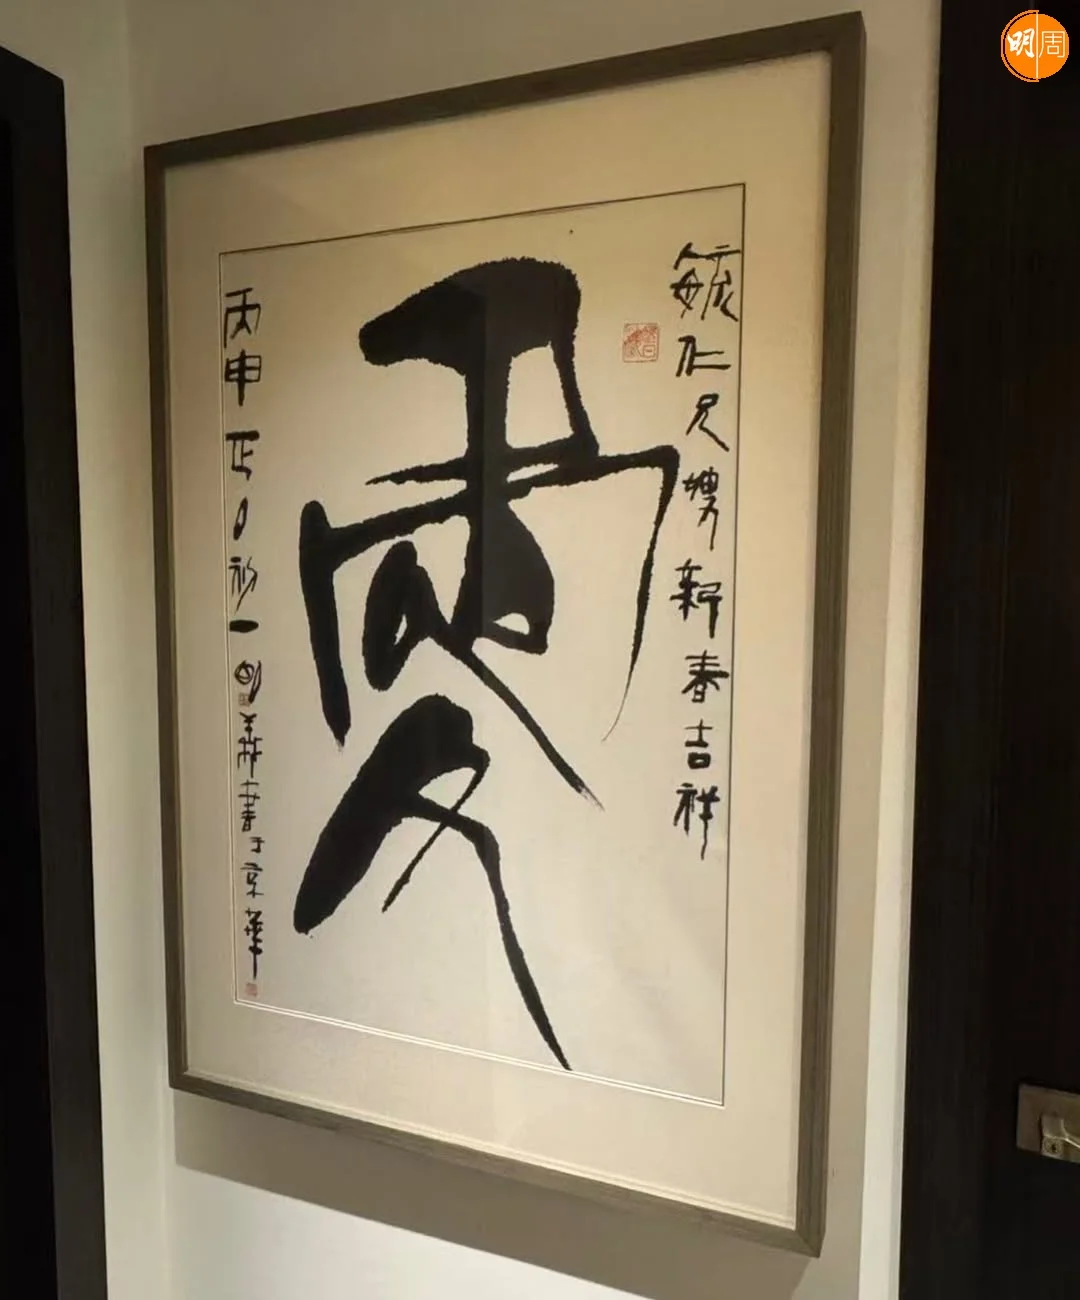 明周
毓仁兄嫂新春吉祥
愛
丙申正月初一書于京華